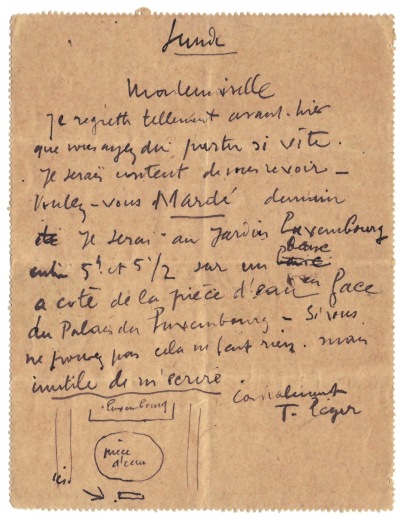 Lundi
Mademoiselle
Je regrette tellement avant-hier
que vous ayez du partir si vite.
Je serais content de vous revoir –
Voulez-vous Mardi demain
Je serai au Jardin Luxembourg
entre 5h et 5h 1/2 sur un banc
a coté de la pièce d'eau en face
du Palais du Luxembourg – Si vous
ne pouvez pas cela ne fait rien. mais
inutile de m'ecrire
Cordialement
Luxembourg
pièce
d'eau
ici